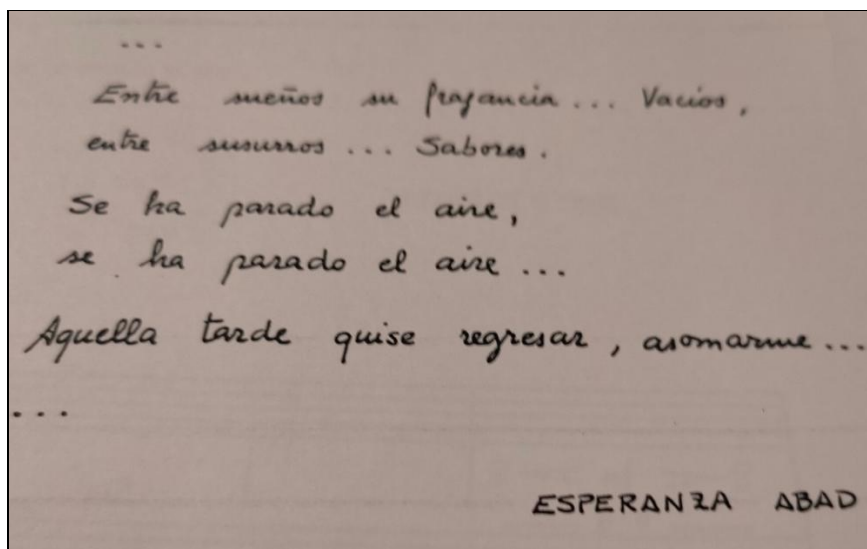 ...
Entre sueños su fragancia ... Vacíos,
entre susurros ... Sabores.
Se ha parado el aire,
se ha parado el aire ...
Aquella tarde quise regresar, asomarme ...
...
ESPERANZA ABAD